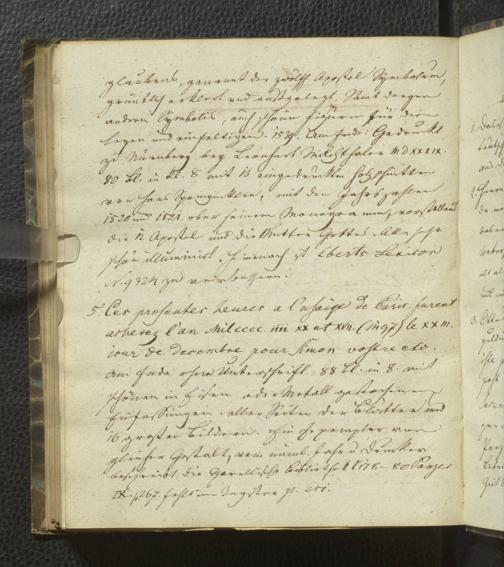 glaubens, genannt der zwölff Apostel Symbolum,
gründtlich erklert und außgelegt. Samt dreyen
andern Symbolis, auch schönen figuren für die
leyen und einfeltigen. 1539. Am Ende: Gedruckt
zu Nürnberg bey Leonhart Milchthaler MDXXXIX.
80 Bl. in kl. 8 mit 13 eingedruckten Holzschnitten
von Hans Springinklee, mit den Jahrzahlen
1520 und 1521 ober seinem Monogramm, vorstellend
die 12 Apostel und die Mutter Gottes. Alle sehr
schön illuminirt. Hiernach ist Eberts Lexicon
N. 9324 zu verbessern.
5. Ces presentes heures a lusaige de Paris furent
achevez l'an Mil cccc. iiii xx et xvii. (1497) le xxiii.
iour de decembre pour Simon vostre etc.
Am Ende ohne Unterschrift 88 Bl. in 8. mit
schönen in Eisen oder Metall gestochenen
Einfassungen aller Seiten der Blätter und
16 großen Bildern. Ein Exemplar von
gleicher Gestalt, vom näml. Jahr u Drucker
beschreibt die Garellische Bibliothek p. 178-80 Panzer
IX. p. 267. fehlt im Register p. 251.